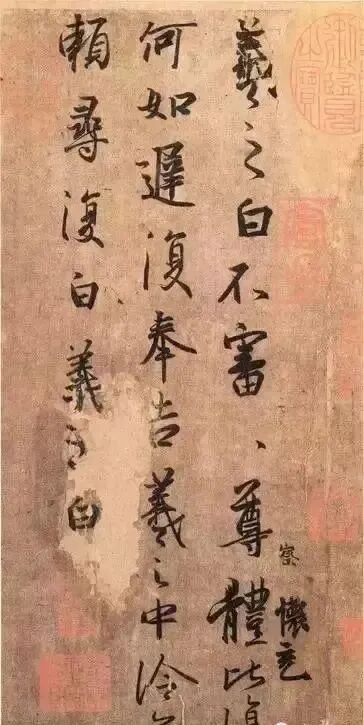 羲之白不審、尊體比復
何如遲復奉告羲之中冷無
賴尋復白羲之白
察 懷充